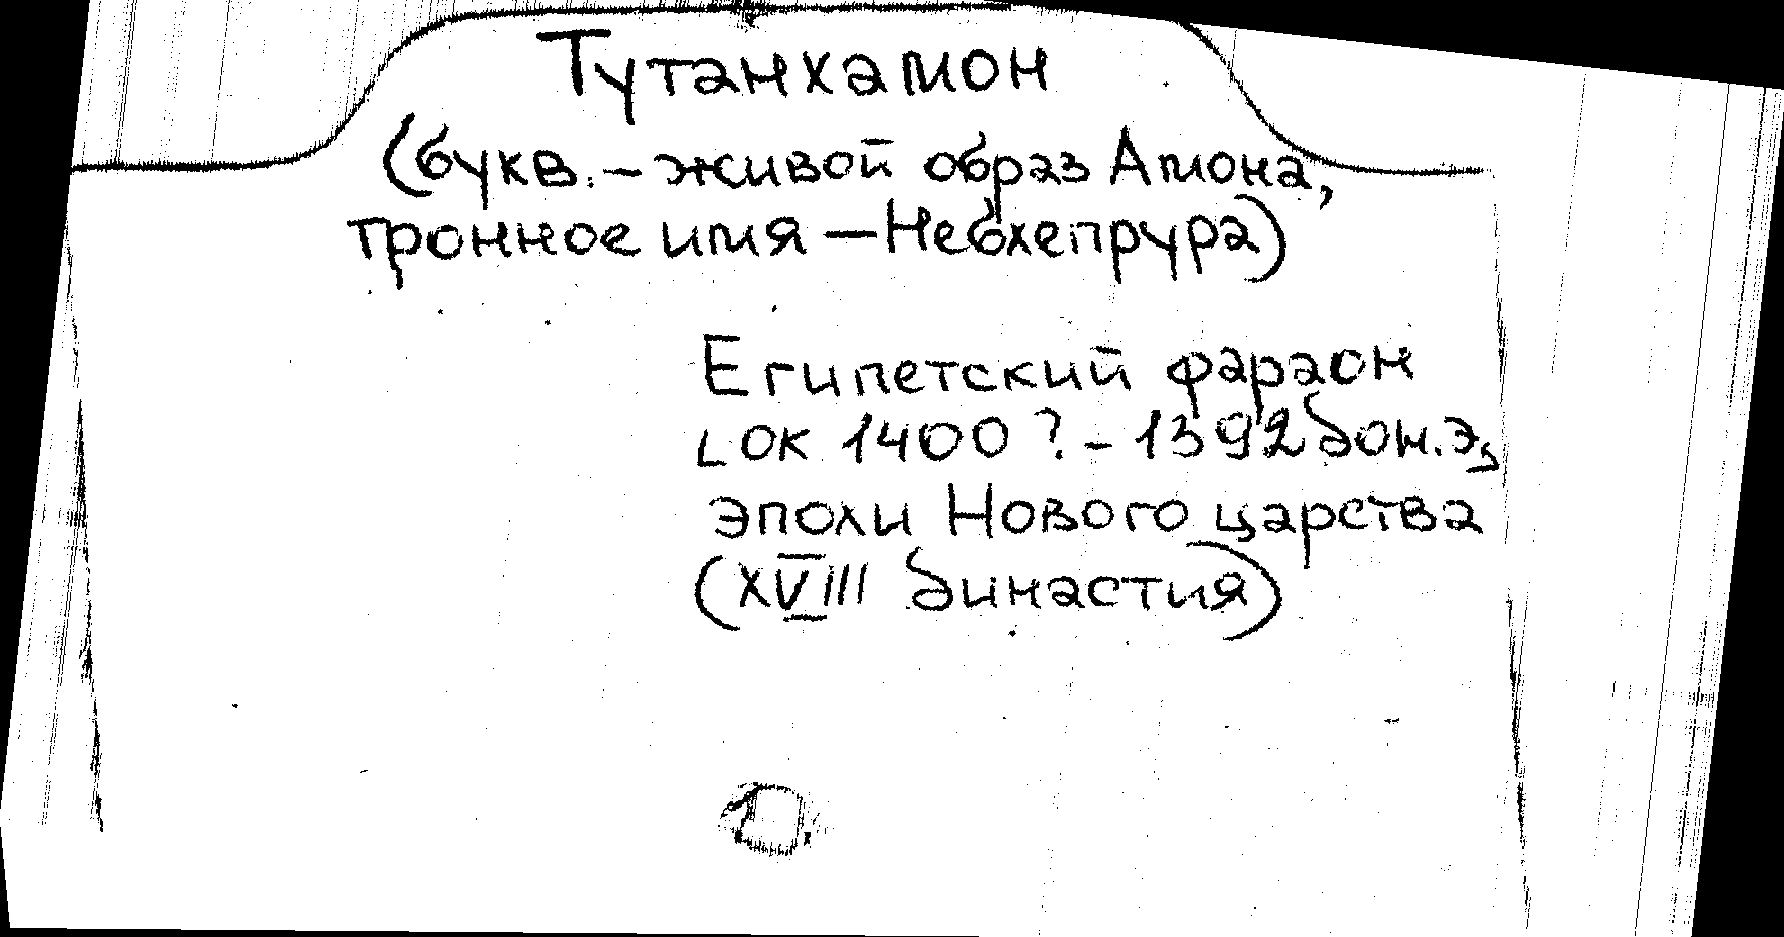 Тутанхамон
(букв. – живой образ Амона,
тронное имя – Небхепрура)
Египетский фараон
[ок 1400 ? – 1392 до н.э.]
эпохи Нового царства
(XVIII династия)